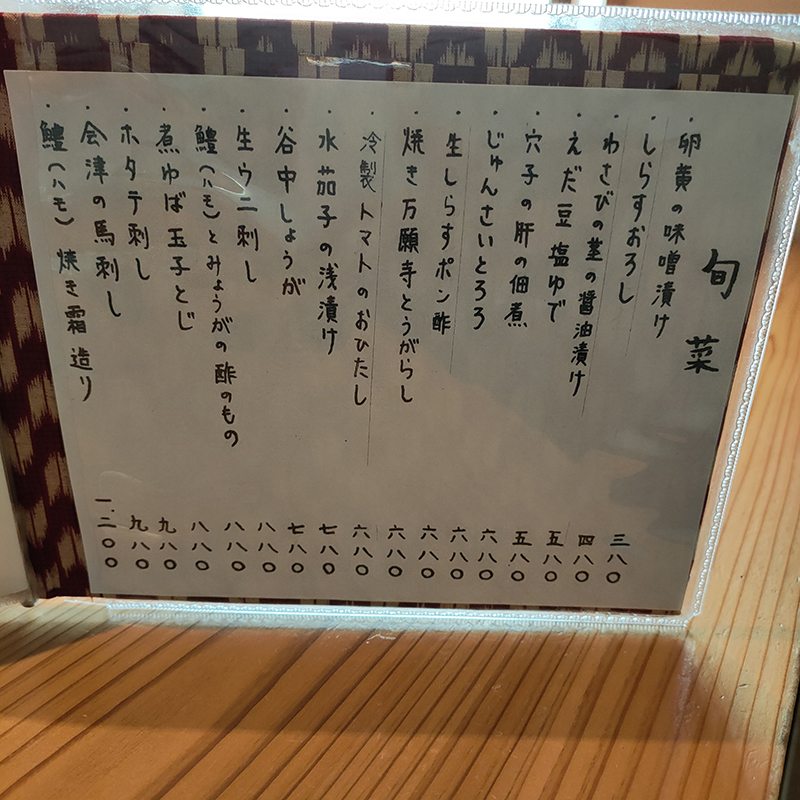 旬菜
・卵黄の味噌漬け 三八〇
・しらすおろし 四八〇
・わさびの茎の醤油漬け 五八〇
・えだ豆塩ゆで 五八〇
・穴子の肝の佃煮 六八〇
・じゅんさいとろろ 六八〇
・生しらすポン酢 六八〇
・焼き万願寺とうがらし 六八〇
・冷製トマトのおひたし 六八〇
・水茄子の浅漬け 七八〇
・谷中しょうが 七八〇
・生ウニ刺し 八八〇
・鱧(ハモ)とみょうがの酢のもの 八八〇
・煮ゆば玉子とじ 八八〇
・ホタテ刺し 九八〇
・会津の馬刺し 九八〇
・鱧(ハモ)焼き霜造り 一.二〇〇